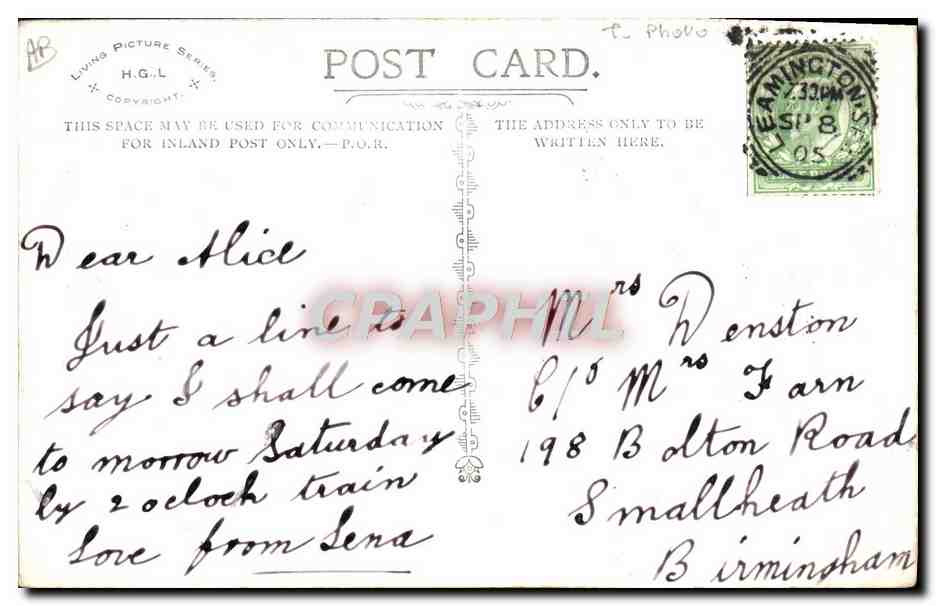 AB
LIVING PICTURE SERIES.
H.G.,L
COPYRIGHT.
POST CARD.
Photo
LEAMINGTON.S
7.30PM
SP 8
05
THIS SPACE MAY BE USED FOR COMMUNICATION
FOR INLAND POST ONLY.—P.O.R.
THE ADDRESS ONLY TO BE
WRITTEN HERE.
Dear Alice
Just a line to
say I shall come
to morrow Saturday
by 2 oclock train
Love from Lena
CPAPHIL
Mrs Denston
C/o Mrs Farn
198 Bolton Road
Smallheath
Birmingham